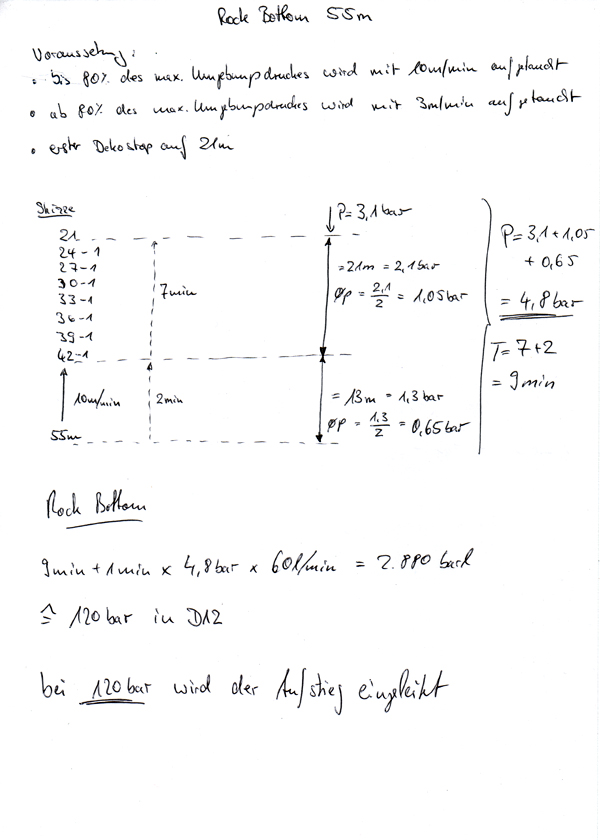 Rock Bottom 55m
Voraussetung:
• bis 80% des max. Umgebungsdruckes wird mit 10m/min aufgetaucht
• ab 80% des max. Umgebungsdruckes wird mit 3m/min aufgetaucht
• erster Dekostop auf 21m
Skizze
21
24-1
27-1
30-1
33-1
36-1
39-1
42-1
10m/min
55m
7min
2min
P=3,1bar
=21m = 2,1bar
øp = 2,1/2 = 1,05bar
= 13m = 1,3bar
øp = 1,3/2 = 0,65bar
P=3,1+1,05
+ 0,65
= 4,8bar
T= 7+2
= 9min
Rock Bottom
9min + 1min x 4,8bar x 60l/min = 2.880 barl
≙ 120bar in D12
bei 120bar wird der Aufstieg eingeleitet